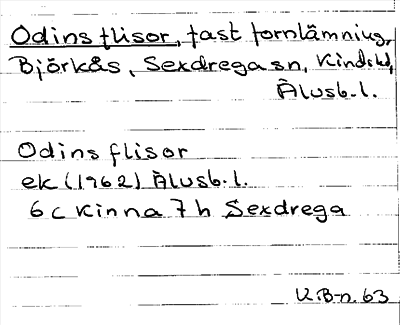 Odins flisor, fast fornlämning,
Björkås, Sexdrega sn, Kinds hd,
Älvsb. l.
Odins flisor
ek (1962) Älvsb. l.
6 c Kinna 7 h Sexdrega
K.B-n. 63